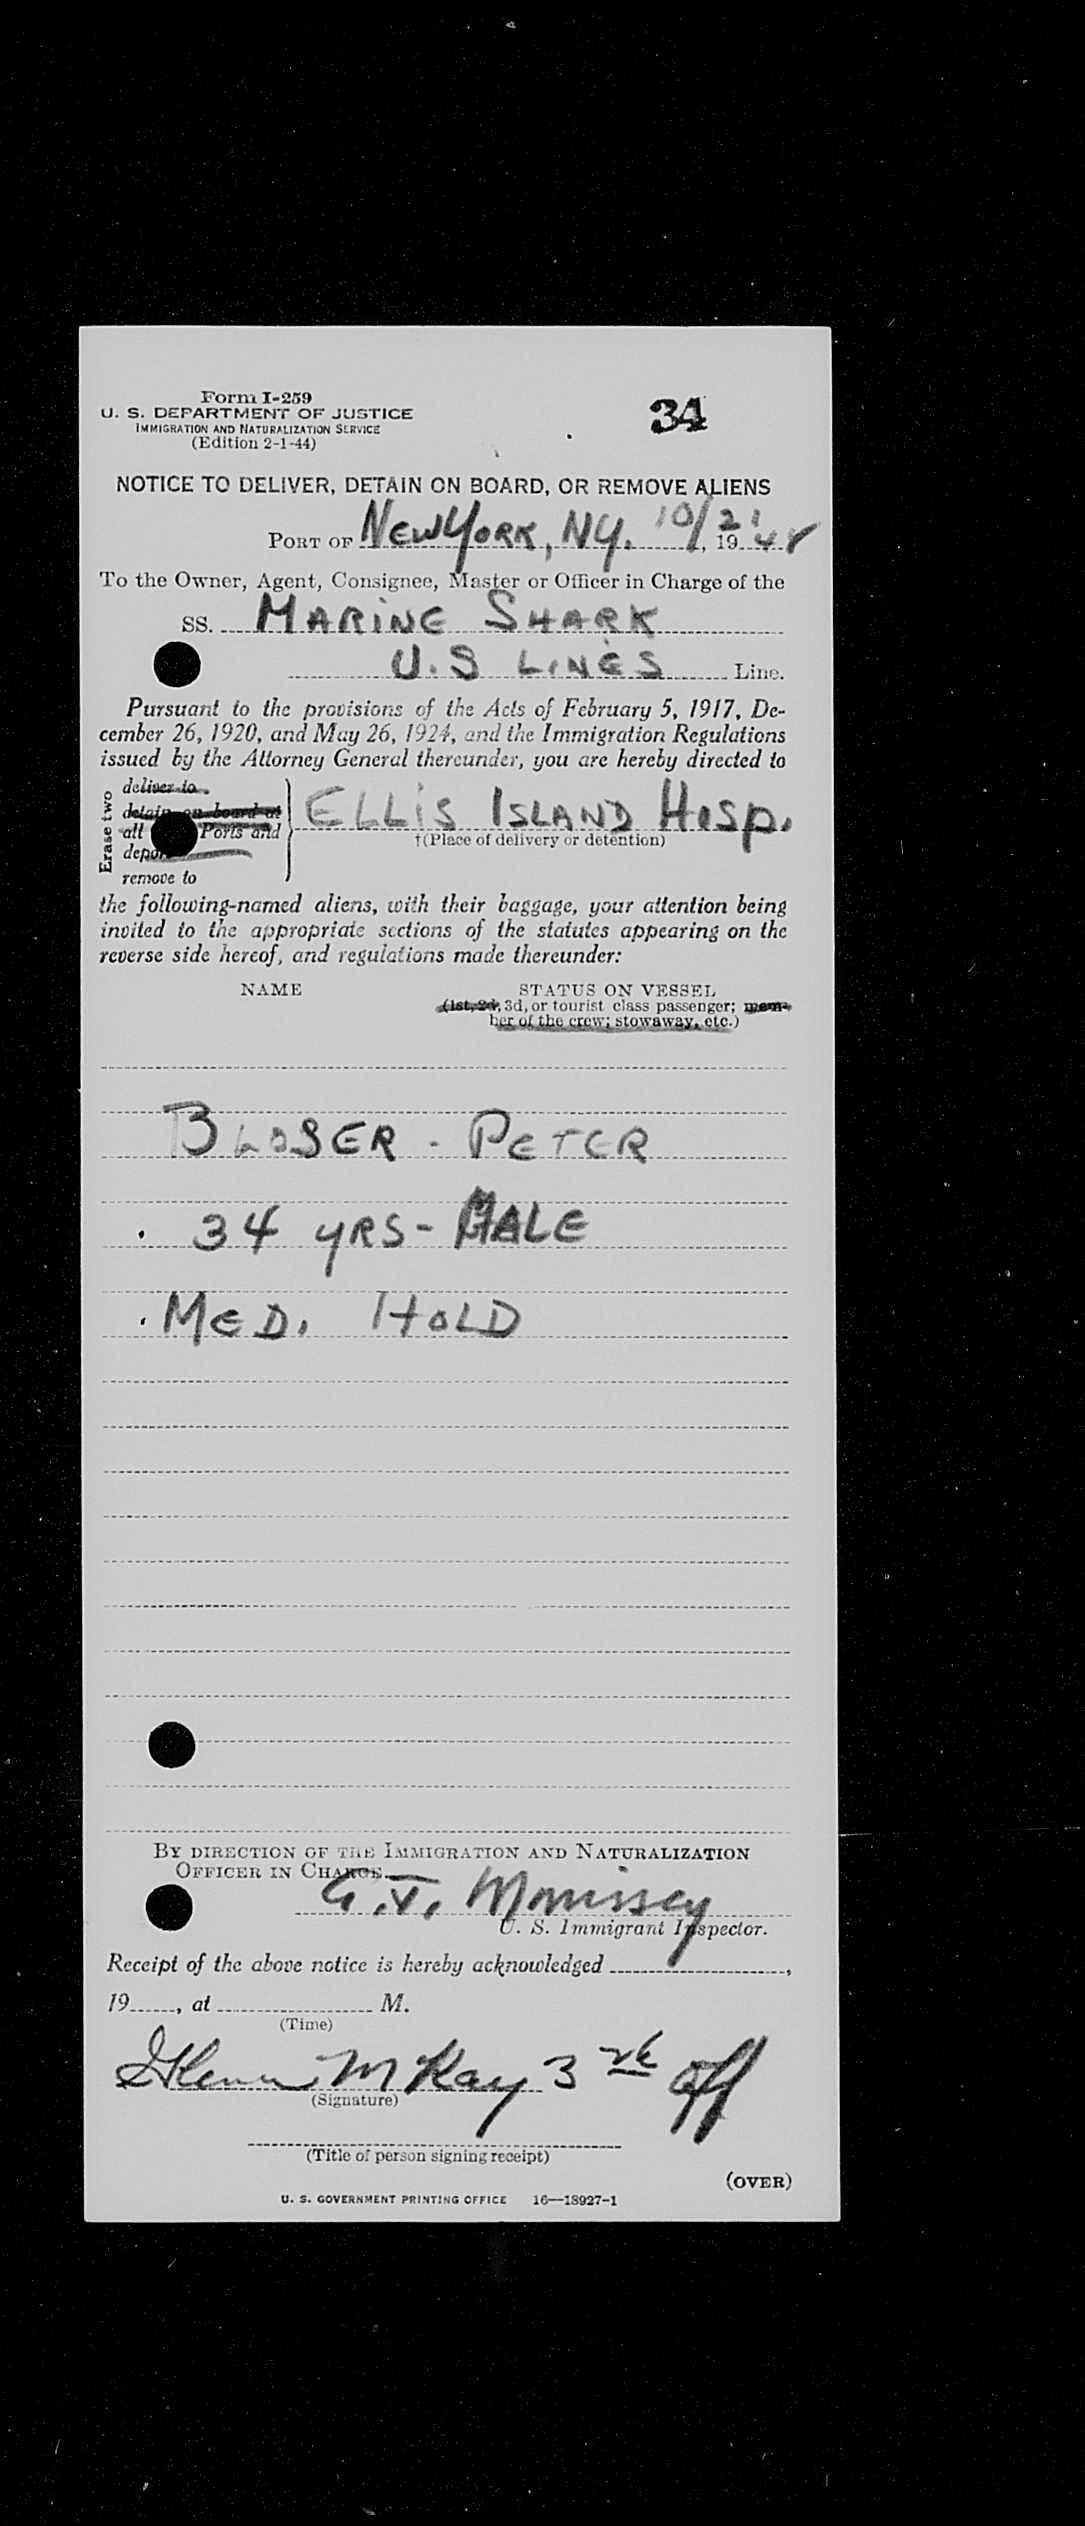 Form I-259
U. S. DEPARTMENT OF JUSTICE
IMMIGRATION AND NATURALIZATION SERVICE
(Edition 2-1-44)
34
NOTICE TO DELIVER, DETAIN ON BOARD, OR REMOVE ALIENS
PORT OF NEW YORK, NY. 10/21, 1948
To the Owner, Agent, Consignee, Master or Officer in Charge of the
SS. MARINE SHARK
U.S LINES Line.
Pursuant to the provisions of the Acts of February 5, 1917, De-
cember 26, 1920, and May 26, 1924, and the Immigration Regulations
issued by the Attorney General thereunder, you are hereby directed to
Erase two
deliver to
detain on board at
all Ports and
remove to
ELLIS ISLAND HOSP.
†(Place of delivery or detention)
the following-named aliens, with their baggage, your attention being
invited to the appropriate sections of the statutes appearing on the
reverse side hereof, and regulations made thereunder:
NAME STATUS ON VESSEL
(1st, 2d, 3d, or tourist class passenger; mem-
ber of the crew; stowaway, etc.)
BLOSER - PETER
34 YRS - MALE
MED. HOLD
BY DIRECTION OF THE IMMIGRATION AND NATURALIZATION
OFFICER IN CHARGE.
G.T. Morrissey
U. S. Immigrant Inspector.
Receipt of the above notice is hereby acknowledged ,
19 , at M.
(Time)
McKay 3 off
(Signature)
(Title of person signing receipt)
(OVER)
U. S. GOVERNMENT PRINTING OFFICE 16—18927-1